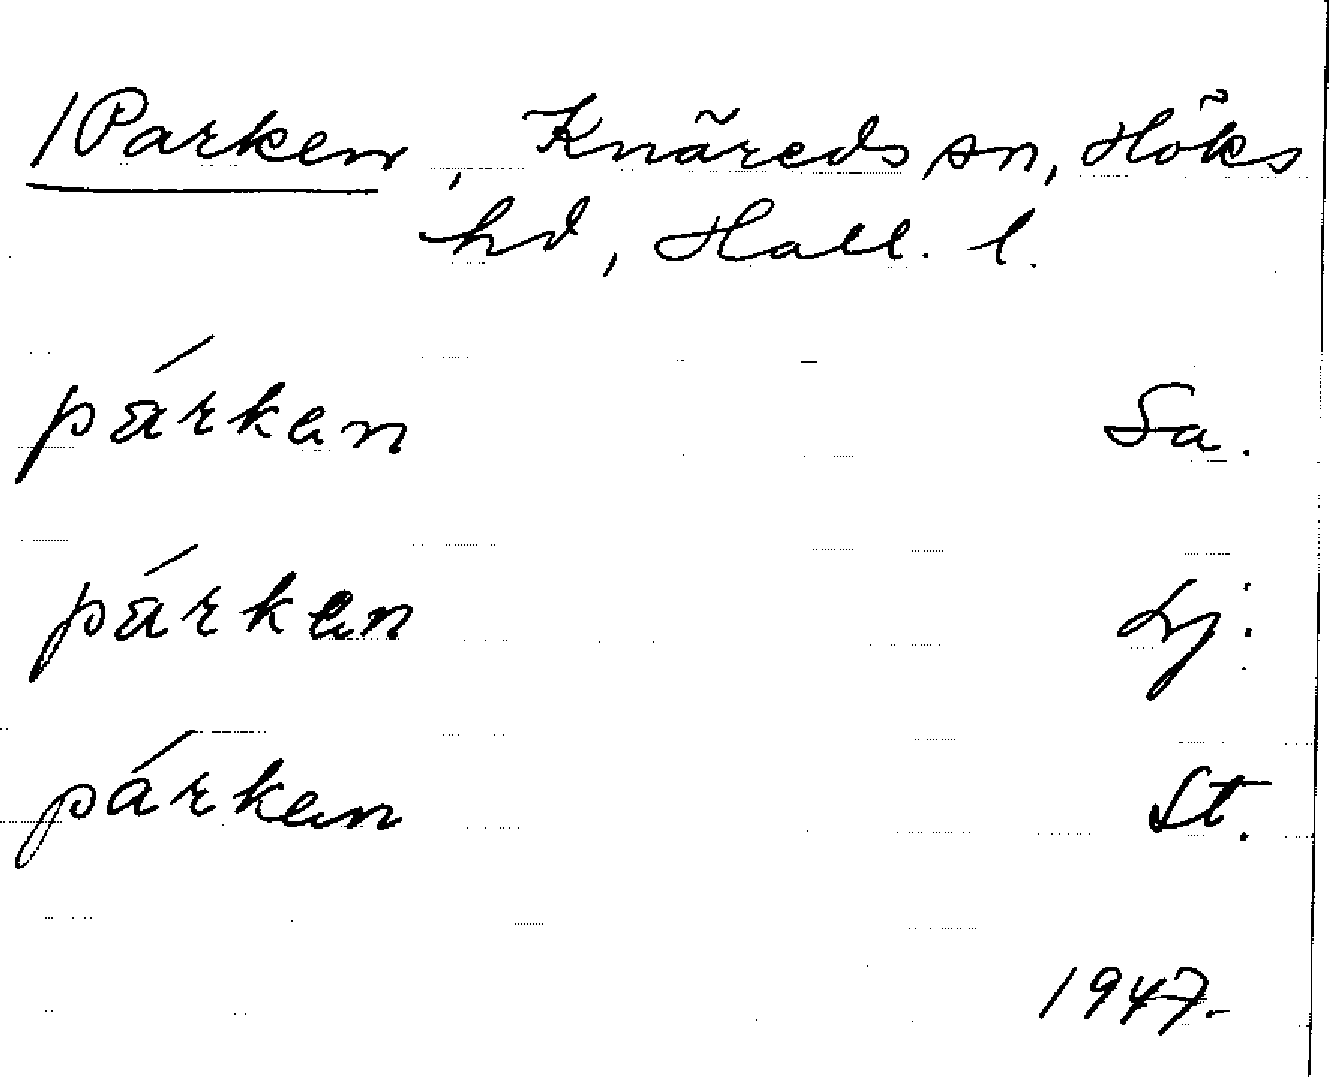 /Parken, Knäreds sn, Höks
hd, Hall. l.
párkan Sa.
párkan Lj.
párkan St.
1947.